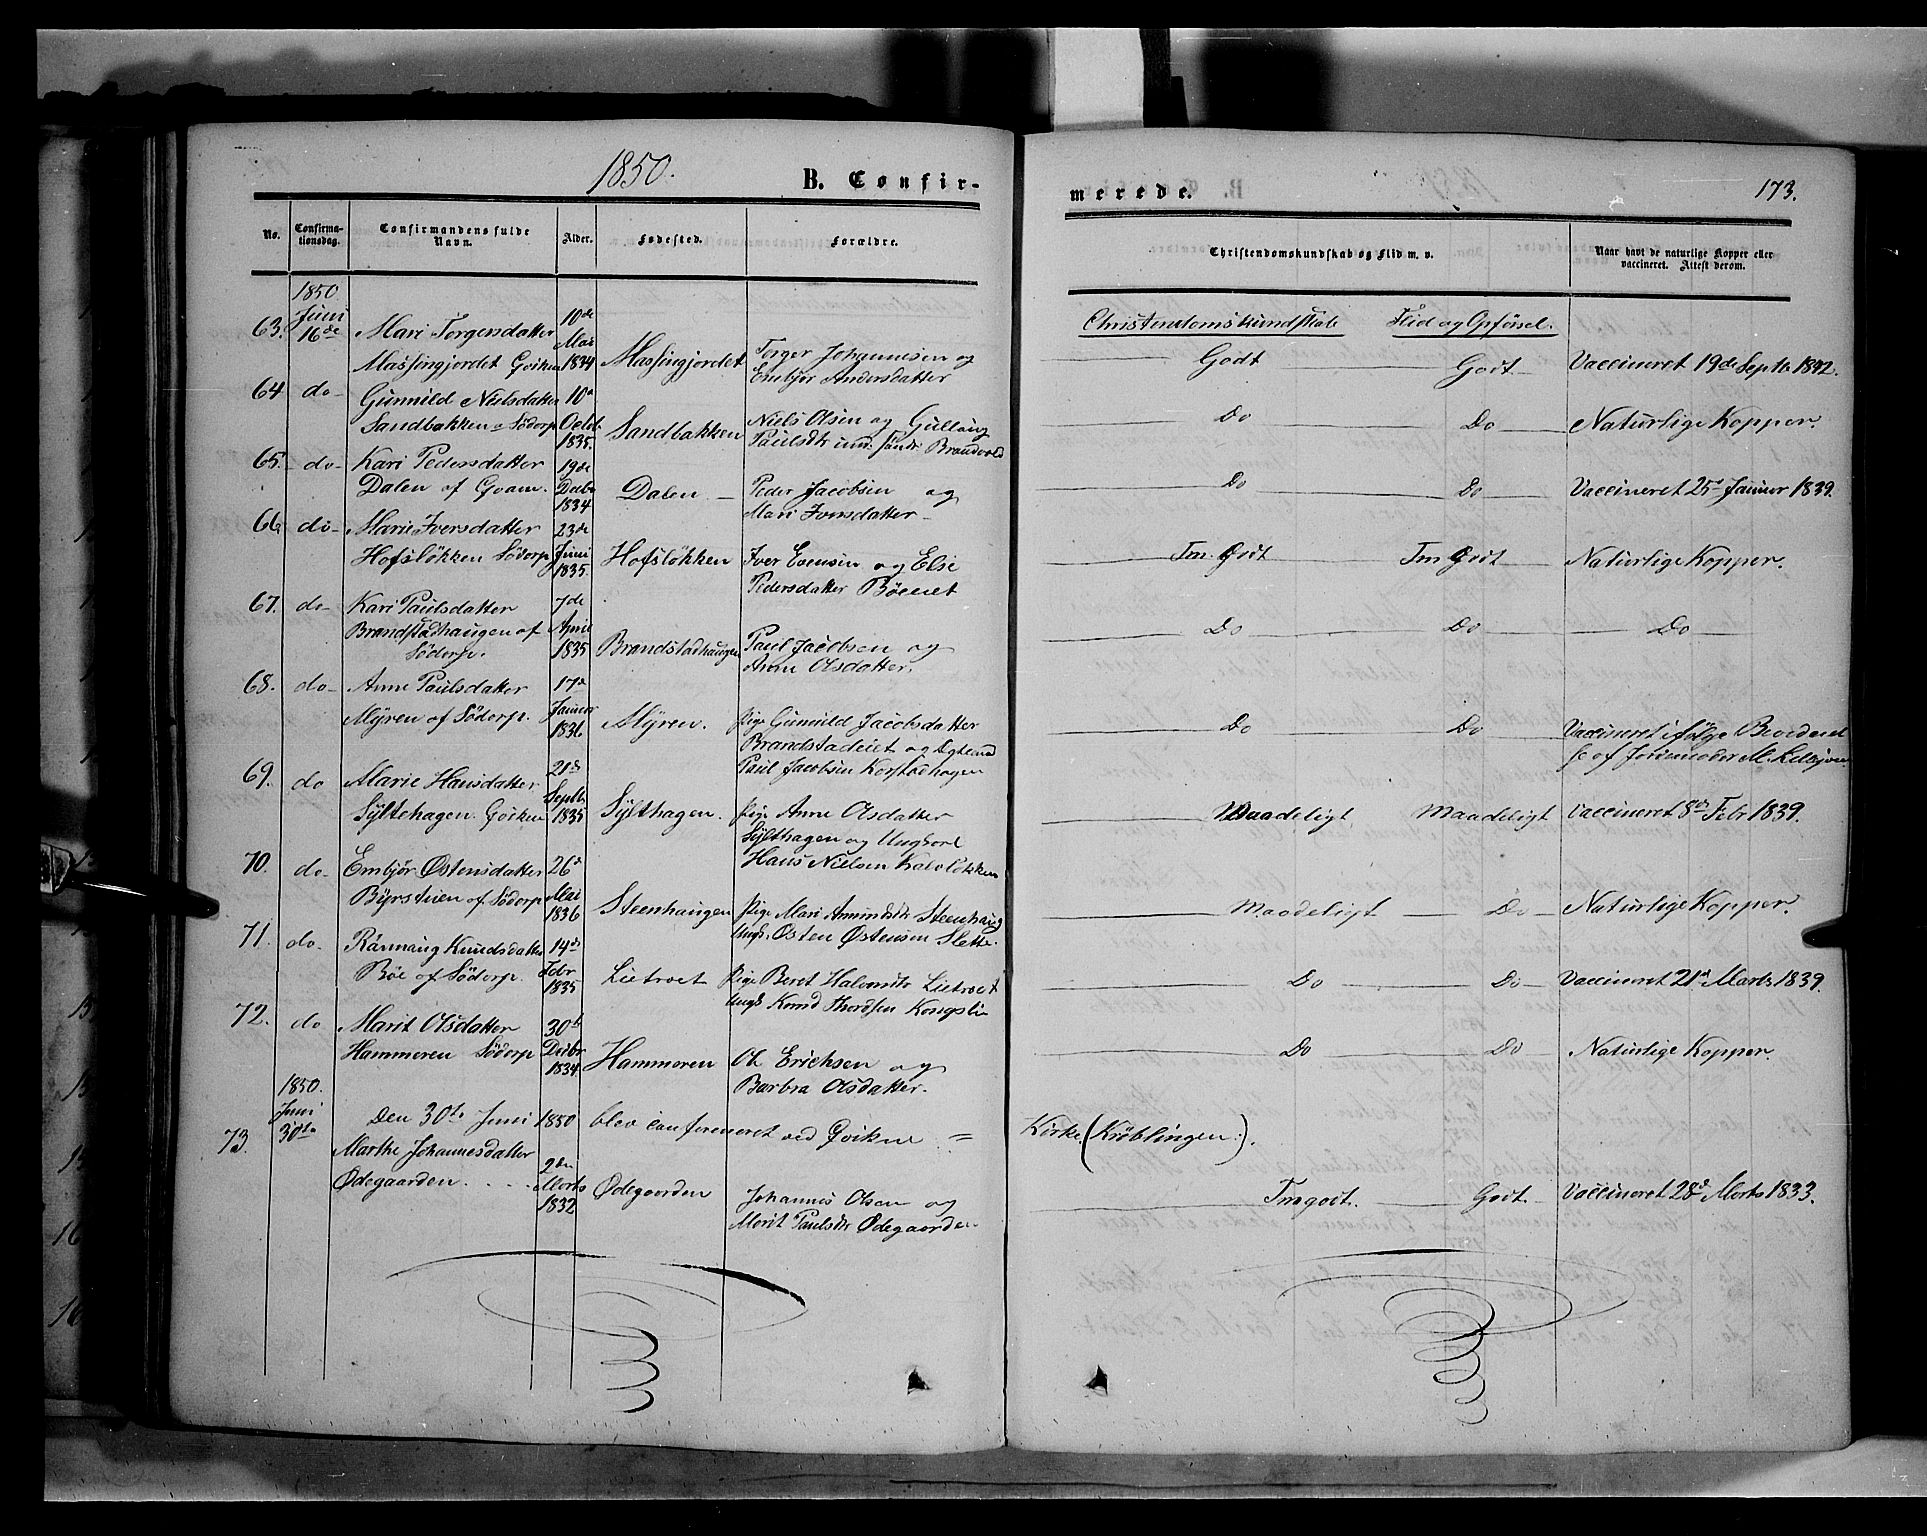 1850.
B. Confir-
merede.
173.
No.
Confirma-
tionsdag.
Confirmandens fulde
Navn.
Alder.
Fødested.
Forældre.
Christendomskundskab og Flid m. v.
Naar havt de naturlige Kopper eller
vaccineret. Attest derom.
Christendomskundskab
Flid og Opførsel.
63.
1850
Juni
16de
Mari Torgersdatter
Massingjordet Qvikne
10de
Mai
1834
Massingjordet
Torger Johannesen og
Embjør Andersdatter
Godt
Godt
Vaccineret 19de Septb 1842.
64
do
Gunnild Nielsdatter
Sandbakken Södorp
10de
Octb
1835.
Sandbakken
Niels Olsen og Gullaug
Paulsdtr Brandvold
Do
Do
Naturlige Kopper.
65.
do
Kari Pedersdatter
Dalen af Qvam.
19de
Decbr
1834
Dalen
Peder Jacobsen og
Mari Iversdatter
Do
Do
Vaccineret 25de Januar 1839.
66
do
Marie Iversdatter
Hofsløkken Södorp
23de
Juni
1835.
Hofsløkken
Iver Evensen og Else
Pedersdatter Böeret
Tm. Godt
Tm Godt
Naturlige Kopper.
67.
do
Kari Paulsdatter
Brandstadhaugen af
Södorp.
7de
April
1835
Brandstadhaugen
Paul Jacobsen og
Anne Olsdatter.
Do
Do
Do
68.
do
Anne Paulsdatter
Myren af Södorp.
17de
Januar
1836
Myren.
Pige Gunnild Jacobsdatter
Brandstadeiet og Egtemd
Paul Jacobsen Korstadhagen
Do
Do
Vaccineret ifølge
af Jordemoder M.
69.
do
Marie Hansdatter
Syltehagen Qvikne
21de
Septb.
1835
Sylthagen.
Pige Anne Olsdatter
Sylthagen og Ungkarl
Hans Nielsen Kalvløkken
Maadeligt
Maadeligt
Vaccineret 8de Febr 1839.
70.
do
Embjør Østensdatter
Byrstuen af Södorp
26de
Mai
1836
Steenhaugen
Pige Mari Amundsdtr Steenhaug
Ungk. Østen Østensen Slette.
Maadeligt
Do
Naturlige Kopper.
71.
do.
Rannaug Knudsdatter
Böe af Södorp.
14de
Febr
1835
Lietroet
Pige Beret Halvordsdtr Lietroet
Ungk Knud Thordsen Kongsli
Do
Do
Vaccineret 21de Marts 1839.
72.
do
Marit Olsdatter
Hammeren Södorp
30te
Decbr
1834
Hammeren
Ole Erichsen og
Barbra Olsdatter.
Do
Do
Naturlige Kopper.
1850.
Juni
30te
Den 30te Juni 1850 blev confirmeret ved Qvikne =
Kirke (Kröblingen:).
73.
Marthe Johannesdatter
Ødegaarden
2den
Marts
1832
Ødegaarden
Johannes Olsen og
Marit Paulsdtr Ødegaarden
Tmgodt.
Godt
Vaccineret 28de Marts 1833.